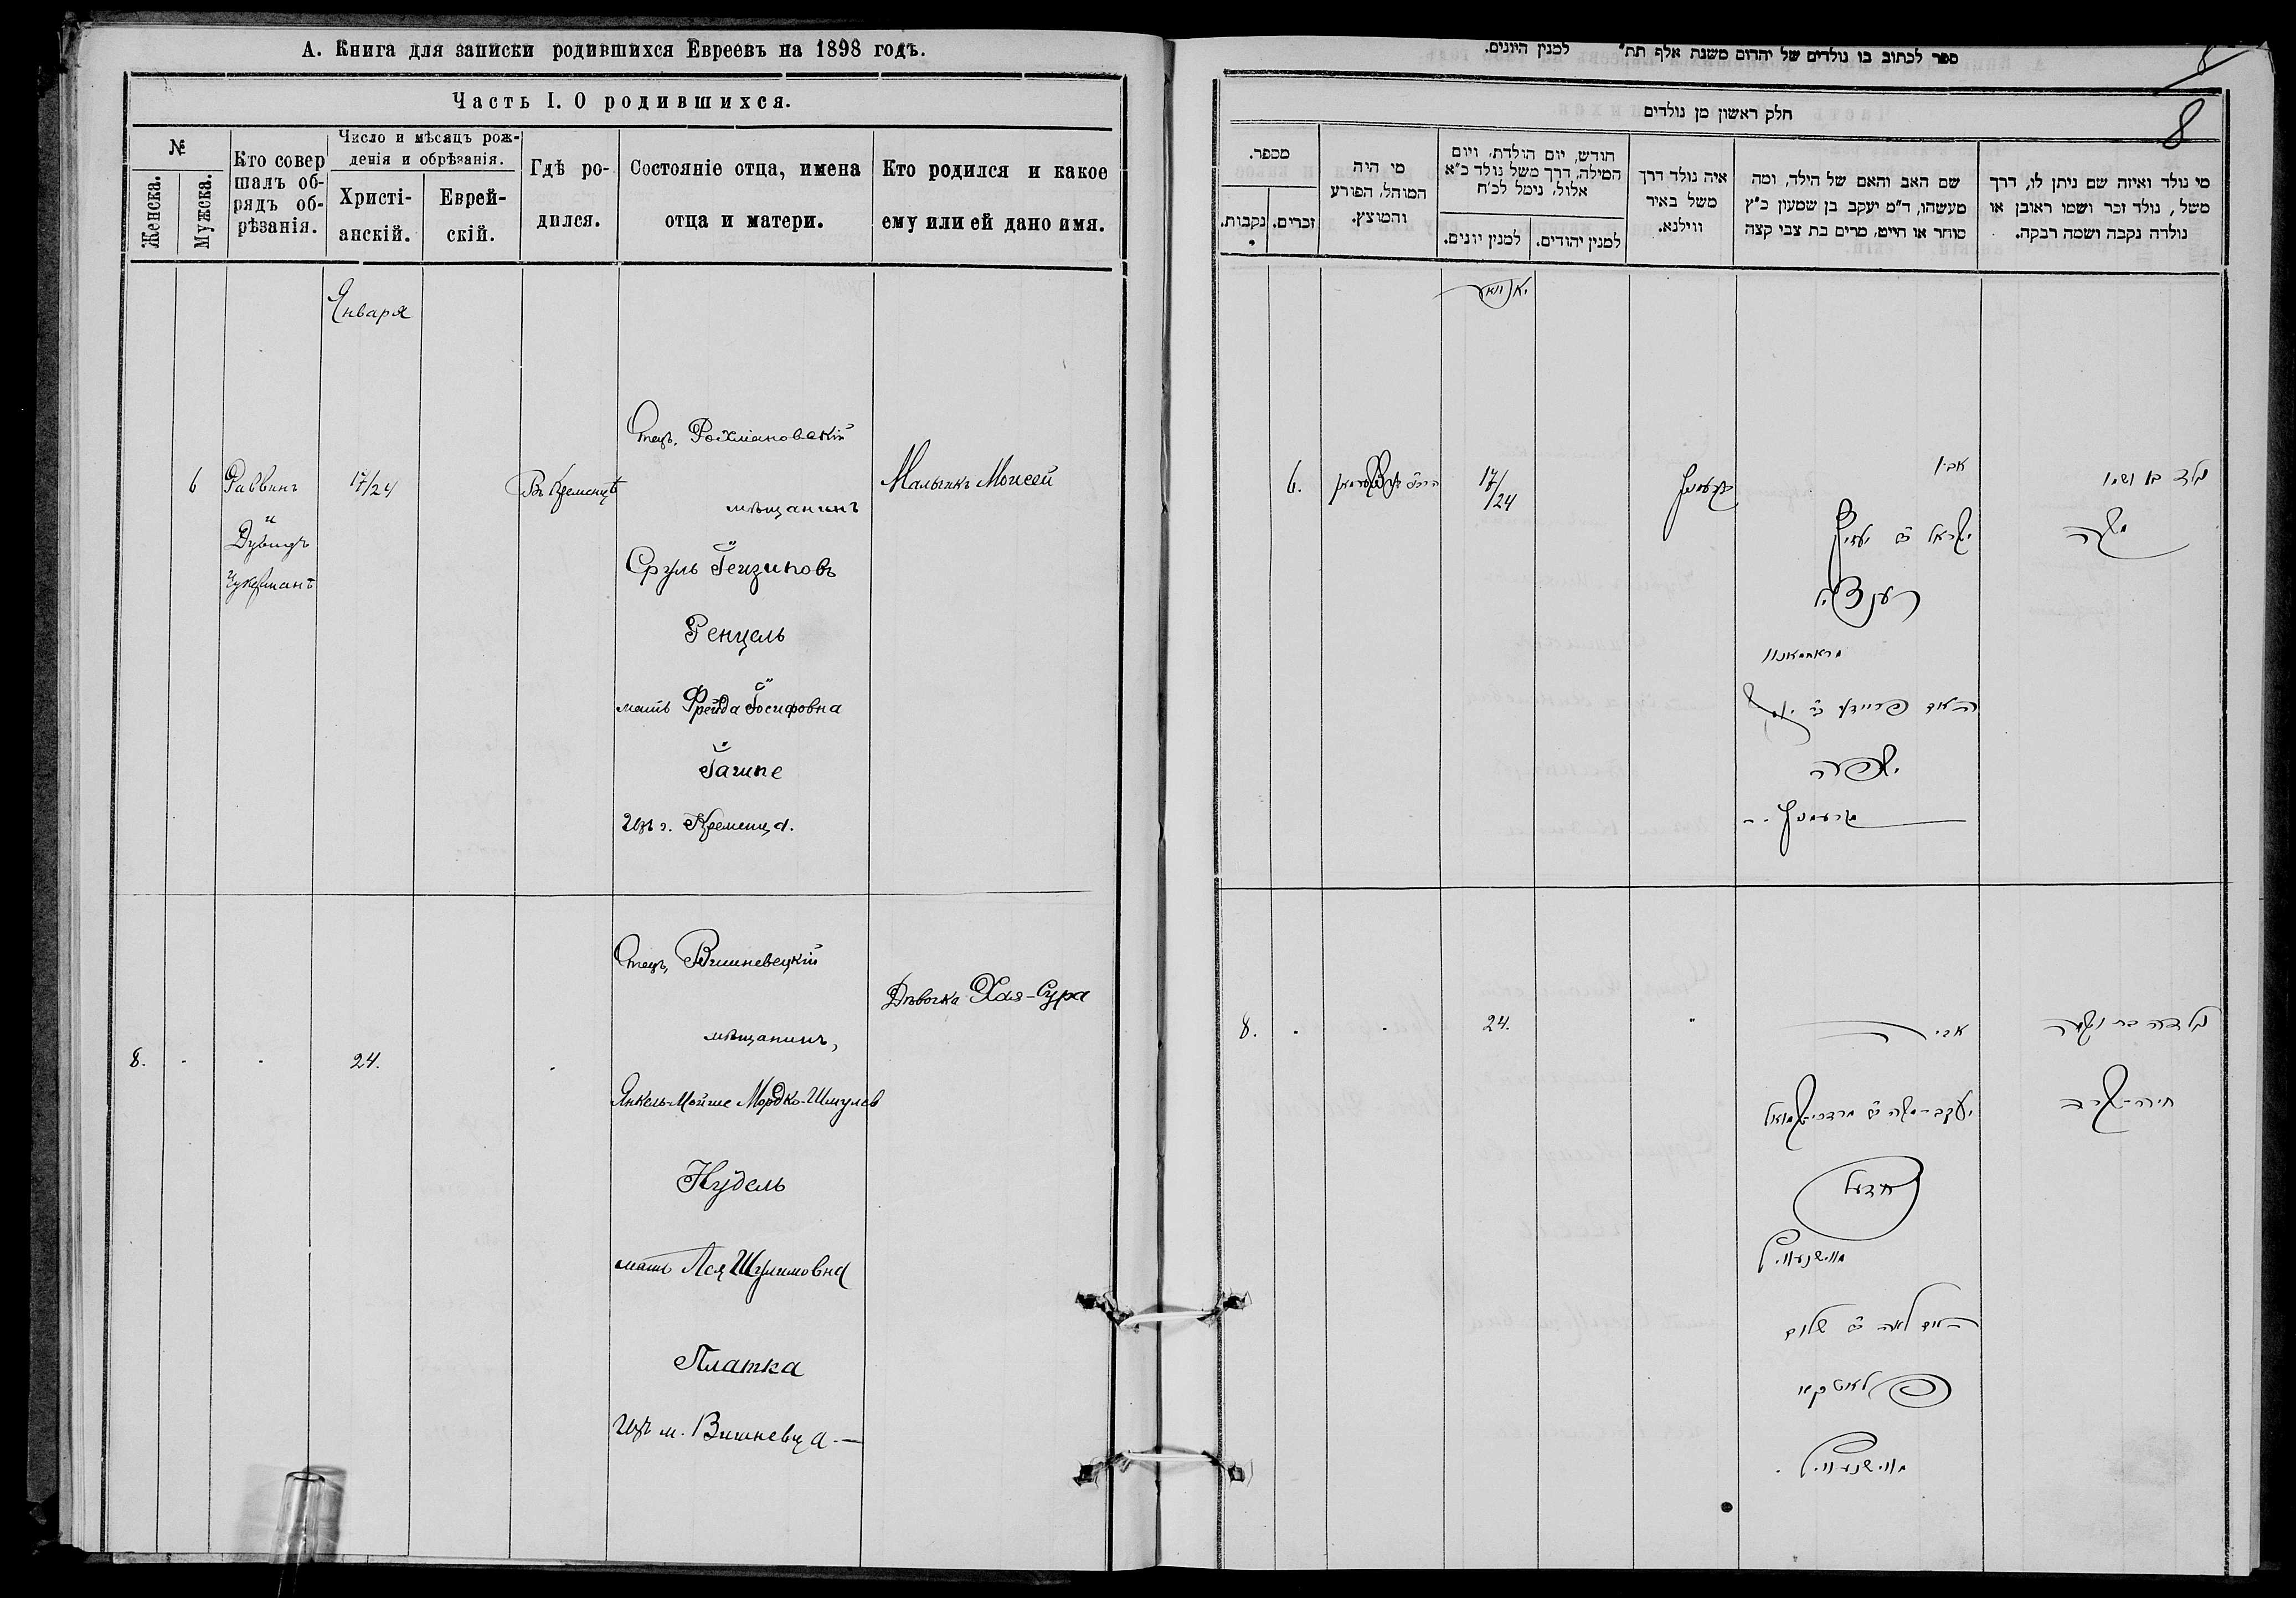 А. Книга для записки родившихся Евреевъ на 1898 годъ.
Часть I. О родившихся.
№
Женска.
Мужска.
Кто совер
шалъ об-
рядъ об-
рѣзанія.
Число и мѣсяцъ рож-
денія и обрѣзанія.
Христі-
анскій.
Еврей-
скій.
Гдѣ ро-
дился.
Состояніе отца, имена
отца и матери.
Кто родился и какое
ему или ей дано имя.
Января
6
Раввинъ
и
Дувидъ
Цукерманъ
17/24
Въ Кременцѣ
Отецъ, Рохмановскій
мѣщанинъ
Сруль
Ренцель
мать Фрейда Іосифовна
Изъ г. Кременца.
Мальчикъ Моисей
8.
24.
Отецъ, Вишневецкій
мѣщанинъ,
Янкель-Мойше Мордко-Шмулев
Нудель
мать Лея Шулимовна
Платка
Изъ м. Вишневца.—
Дѣвочка Хая-Сура
ספר לכתוב בו נולדים של יהדום משנת אלף תת״ למנין היונים.
8
חלק ראשון מן נולדים
מספר.
נקבות.
זכרים.
מי היה
המוהל, הפורע
והמוצץ.
חודש, יום הולדת, ויום
המילה, דרך משל נולד כ״א
אלול, נימל לכ״ח
למנין יונים.
למנין יהודים.
איה נולד דרך
משל באיר
ווילנא.
שם האב והאם של הילד, ומה
מעשהו, ד״מ יעקב בן שמעון כ״ץ
סוחר או חייט, מרים בת צבי קצה
מי נולד ואיזה שם ניתן לו, דרך
משל, נולד זכר ושמו ראובן או
נולדה נקבה ושמה רבקה.
יאנואר
6.
17/24
קרעמניץ
אביו
ישראל
רענציל
מראחמאנוו
האם פריידע
יאפע
מקרעמניץ
נולד בן ושמו
משה
8.
24.
אביה
יעקב-משה מרדכי-שמואל
נודעל
מווישנעוויץ
האם לאה שלום
פלאטקא
מווישנעוויץ.
נולדה בת ושמה
חיה-שרה